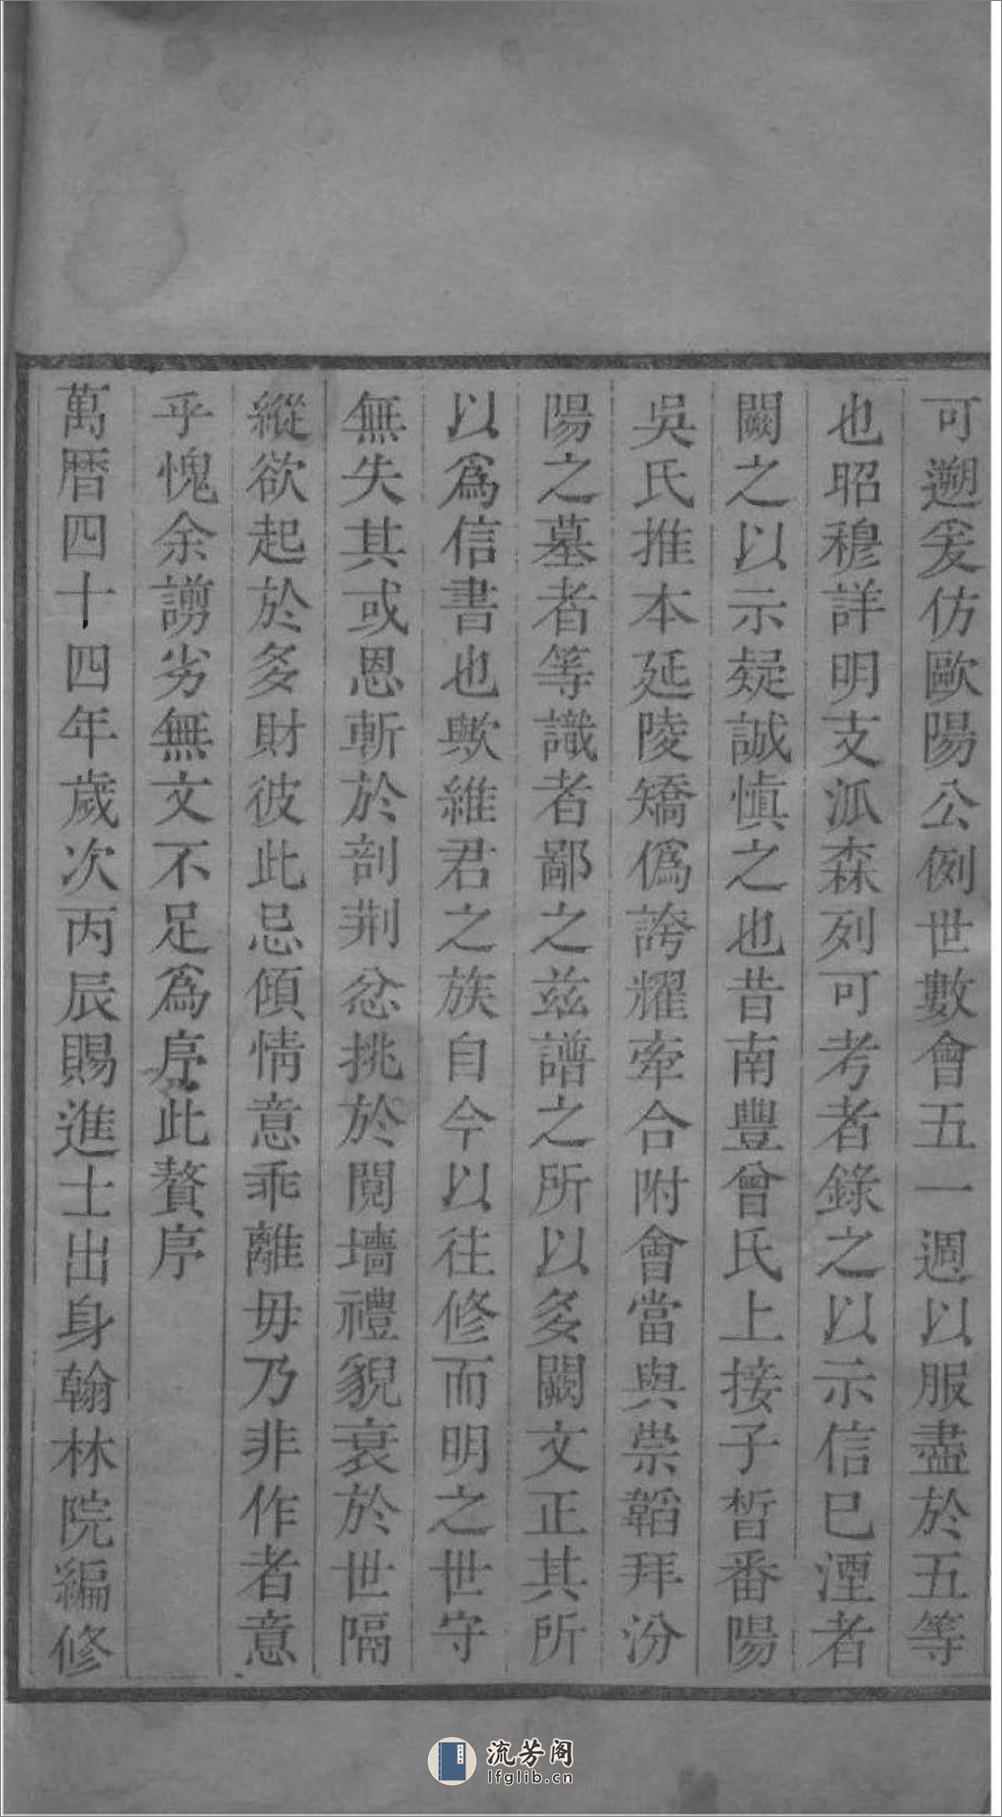 可遡爰仿歐陽公例世數會五一週以服盡於五等
也昭穆詳明支派森列可考者錄之以示信已湮者
闕之以示疑誠慎之也昔南豐曾氏上接子晳番陽
吳氏推本延陵矯僞誇耀牽合附會當與崇韜拜汾
陽之墓者等識者鄙之兹譜之所以多闕文正其所
以爲信書也歟維君之族自今以往修而明之世守
無失其或恩斬於剖荆忿挑於鬩墻禮貎衰於世隔
縱欲起於多財彼此忌傾情意乖離毋乃非作者意
乎愧余謭劣無文不足爲序此贅序
萬曆四十四年歲次丙辰賜進士出身翰林院編修
流芳阁
lfglib.cn